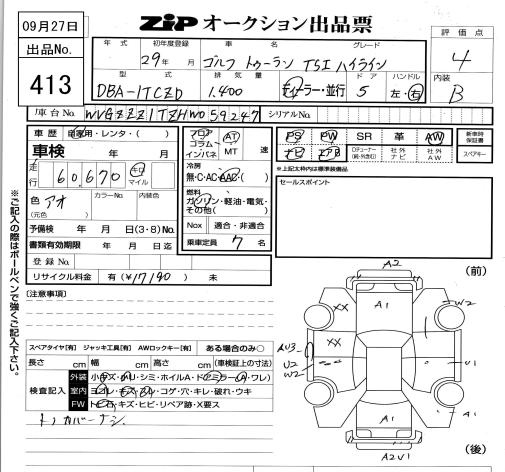 09月27日
出品No.
413
ZIP オークション出品票
評価点
4
内装
B
年式 初年度登録 車名 グレード
29年 月 ゴルフ トゥーラン TSI ハイライン
型式 排気量 ドア ハンドル
DBA-1TCZD 1.400 ディーラー・並行 5 左・右
車台No. WVGZZZ1TZHW059247 シリアルNo.
車歴 自家用・レンタ・( )
車検 年 月
走行 60,670 キロ マイル
色 アオ (元色) カラーNo. 内装色
予備検 年 月 日(3・8)No.
書類有効期限 年 月 日迄
登録No.
リサイクル料金 有(¥17190) 未
フロア コラム インパネ AT MT 速
冷房
無・C・AC・AAC( )
燃料
ガソリン・軽油・電気・その他( )
Nox 適合・非適合
乗車定員 7 名
PS PW SR 革 AW
ナビ エアB DFチューナー(純・社外) 社外ナビ 社外AW
新車時保証書
スペアキー
※上記太枠内は標準装備品
セールスポイント
※ご記入の際はボールペンで強くご記入下さい。
[注意事項]
スペアタイヤ[有] ジャッキ工具[有] AWロックキー[有] ある場合のみ○
長さ cm 幅 cm 高さ cm (車検証上の寸法)
検査記入
外装
室内 ヨゴレ・キズ・スレ・コゲ・穴・キレ・破れ・ウキ
FW トビ石・キズ・ヒビ・リペア跡・X要ス
トノカバーナシ
(前)
A2
A1
XX
W2
XX
AU3
U2
W2
U1
A1
A1
A2U1
(後)